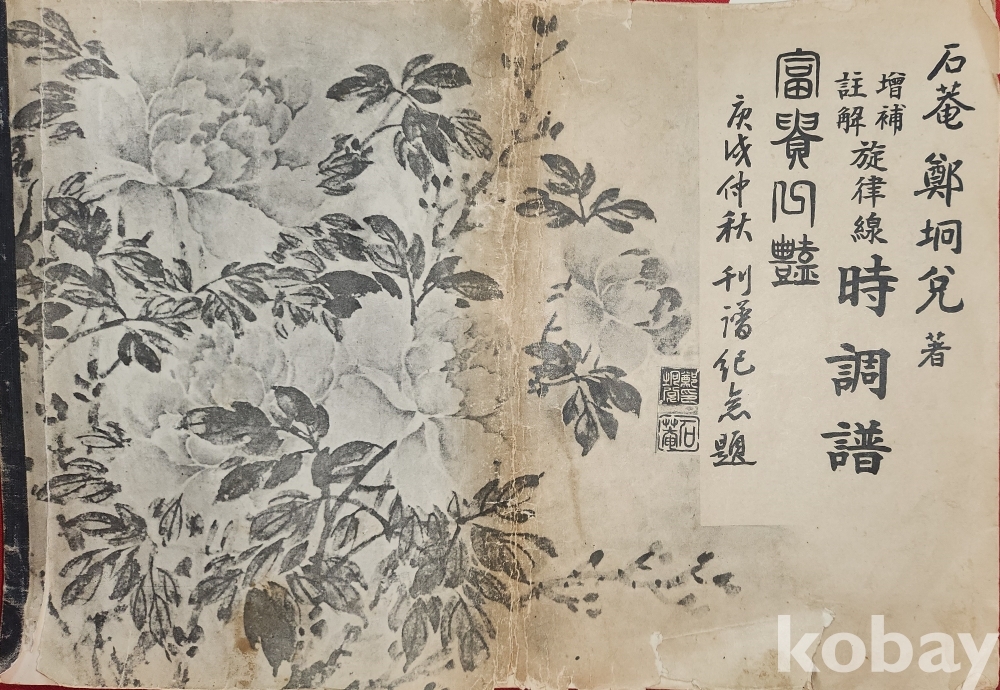 石菴 鄭坰兌 著
增補
註解
旋律線 時調譜
富貴
庚戌仲秋 刊譜紀念題
石菴
kobay